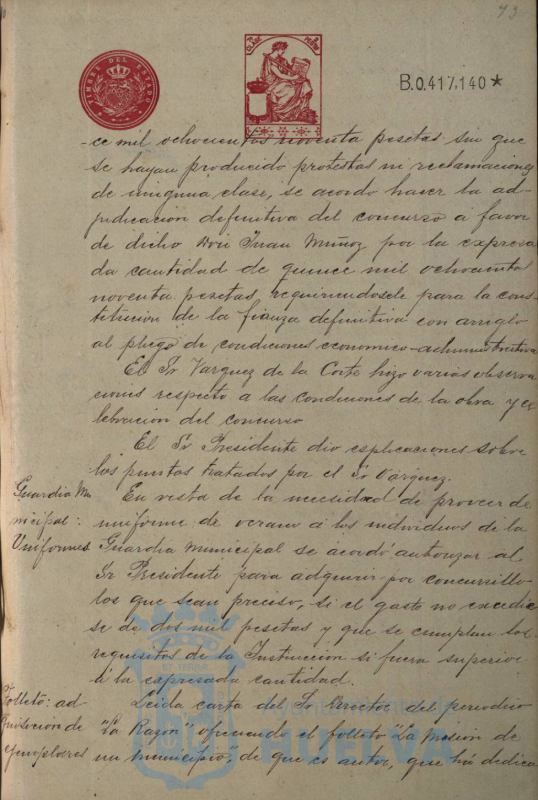 73
TIMBRE DEL ESTADO
B.0.417,140*
-ce mil ochocientos noventa pesetas sin que
se hayan producido protestas ni reclamaciones
de ninguna clase, se acordó hacer la ad-
judicacion definitiva del concurso a favor
de dicho Don Juan Muñoz por la expresa
da cantidad de quince mil ochocientas
noventa pesetas requiriendosele para la cons-
titucion de la fianza definitiva con arreglo
al pliego de condiciones economico-administrativas
El Sr Vazquez de la Corte hizo varias observa
ciones respecto a las condiciones de la obra y ce
lebracion del concurso
El Sr Presidente dio esplicaciones sobre
los puntos tratados por el Sr Vazquez.
Guardia Mu
nicipal:
Uniformes
En vista de la necesidad de proveer de
uniforme de verano á los individuos de la
Guardia Municipal se acordó autorizar al
Sr Presidente para adquirir por concursillo
los que sean preciso, si el gasto no excedie
se de dos mil pesetas y que se cumplan los
requisitos de la Instruccion si fuera superior
á la expresada cantidad.
Folleto: ad-
quisicion de
ejemplares
Leida carta del Sr Director del periodico
"La Razon" ofreciendo el folleto "La Mision de
un Municipio", de que es autor, que há dedica
Ayuntamiento de
HUELVA